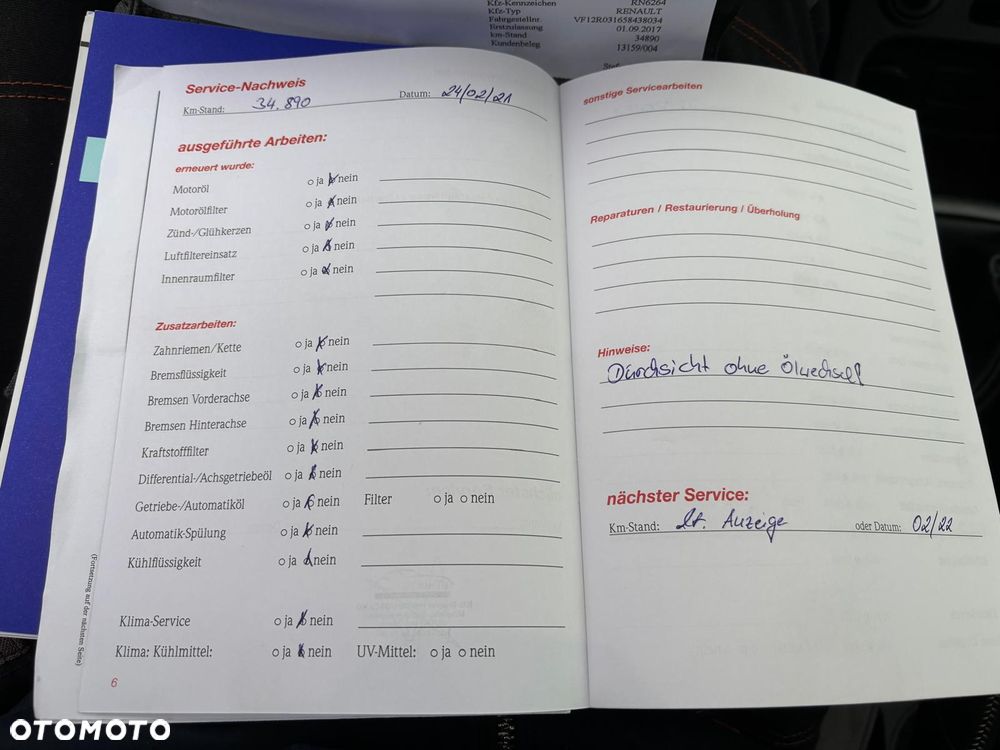 Kfz-Kennzeichen RN6264
Kfz-Typ RENAULT
Fahrgestellnr. VF12R031658438034
Erstzulassung 01.09.2017
km-Stand 34890
Kundenbeleg 13159/004
Service-Nachweis
Km-Stand: 34.890 Datum: 24/02/21
ausgeführte Arbeiten:
erneuert wurde:
Motoröl o ja o nein
Motorölfilter o ja o nein
Zünd-/Glühkerzen o ja o nein
Luftfiltereinsatz o ja o nein
Innenraumfilter o ja o nein
Zusatzarbeiten:
Zahnriemen/Kette o ja o nein
Bremsflüssigkeit o ja o nein
Bremsen Vorderachse o ja o nein
Bremsen Hinterachse o ja o nein
Kraftstofffilter o ja o nein
Differential-/Achsgetriebeöl o ja o nein
Getriebe-/Automatiköl o ja o nein Filter o ja o nein
Automatik-Spülung o ja o nein
Kühlflüssigkeit o ja o nein
Klima-Service o ja o nein
Klima: Kühlmittel: o ja o nein UV-Mittel: o ja o nein
(Fortsetzung auf der nächsten Seite)
6
sonstige Servicearbeiten
Reparaturen / Restaurierung / Überholung
Hinweise:
Durchsicht ohne Ölwechsel
nächster Service:
Km-Stand: lt. Anzeige oder Datum: 02/22
OTOMOTO